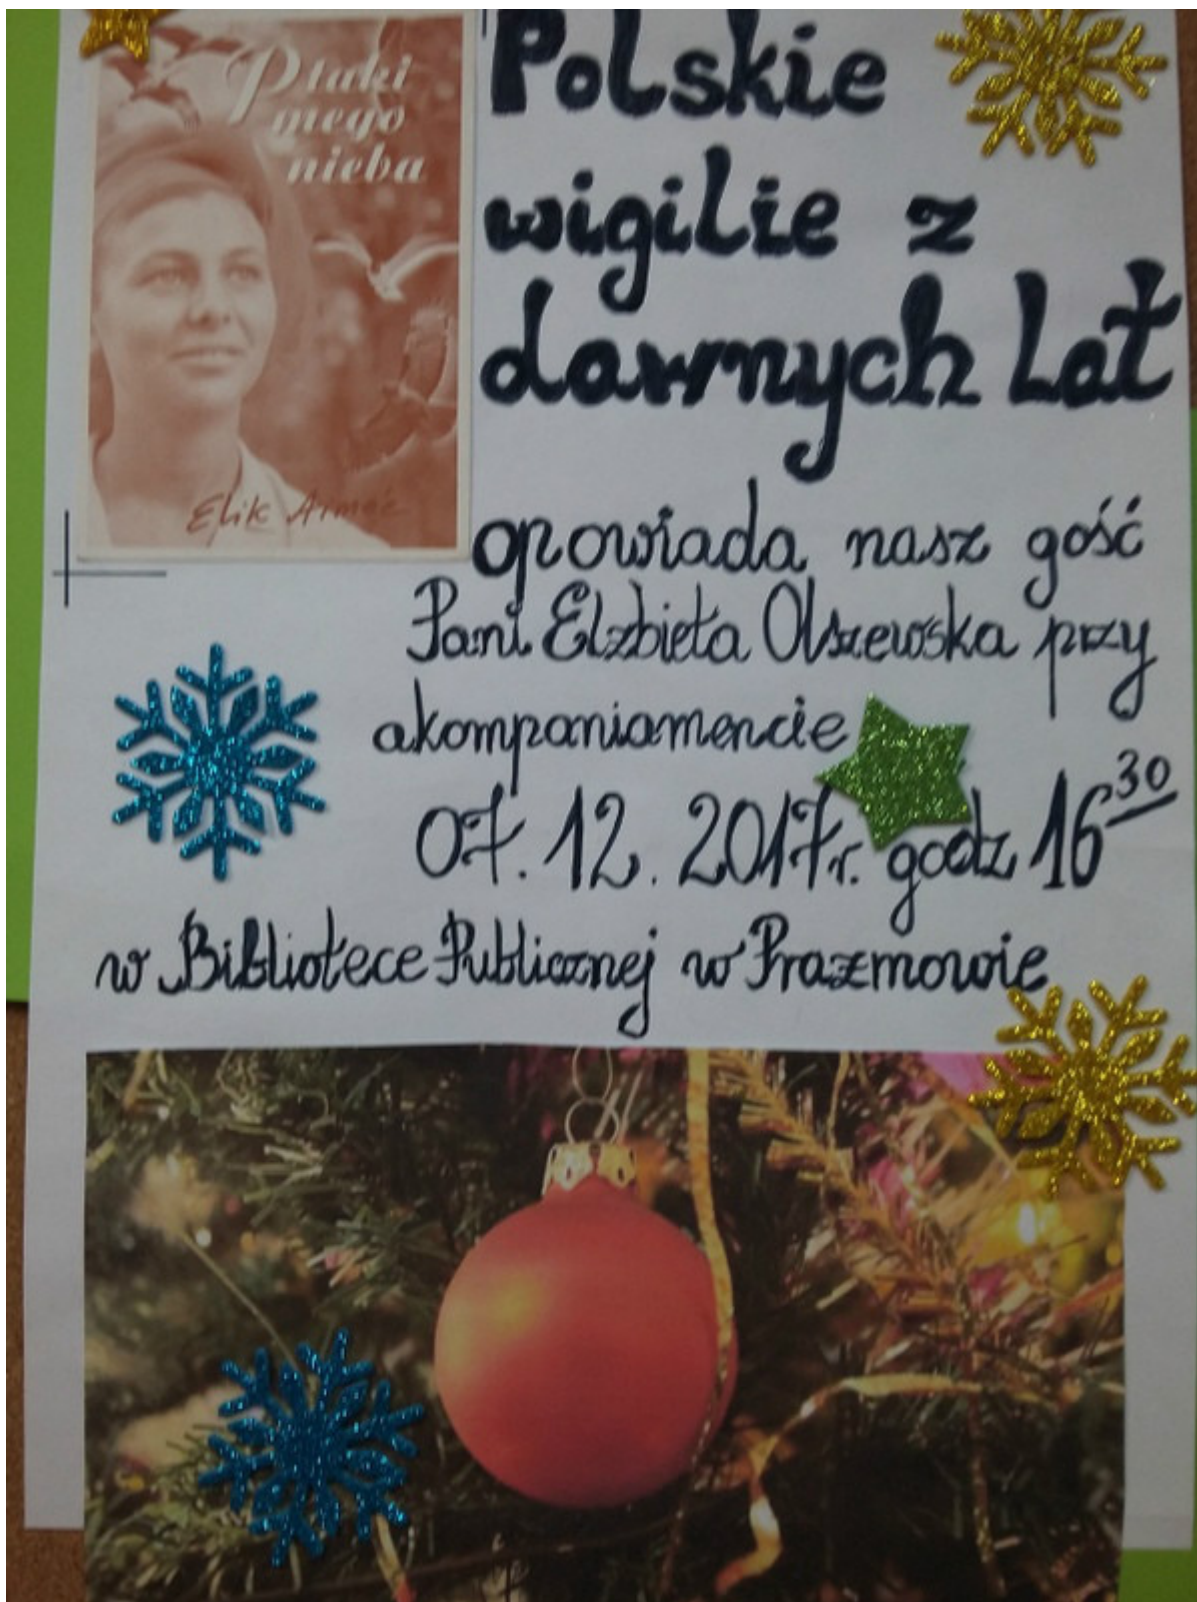 Ptaki
mego
nieba
Elik Aimée
Polskie
wigilie z
dawnych lat
opowiada nasz gość
Pani Elzbieta Olszewska przy
akompaniamencie
07. 12. 2017r. godz 16 30
w Bibliotece Publicznej w Prazmowie